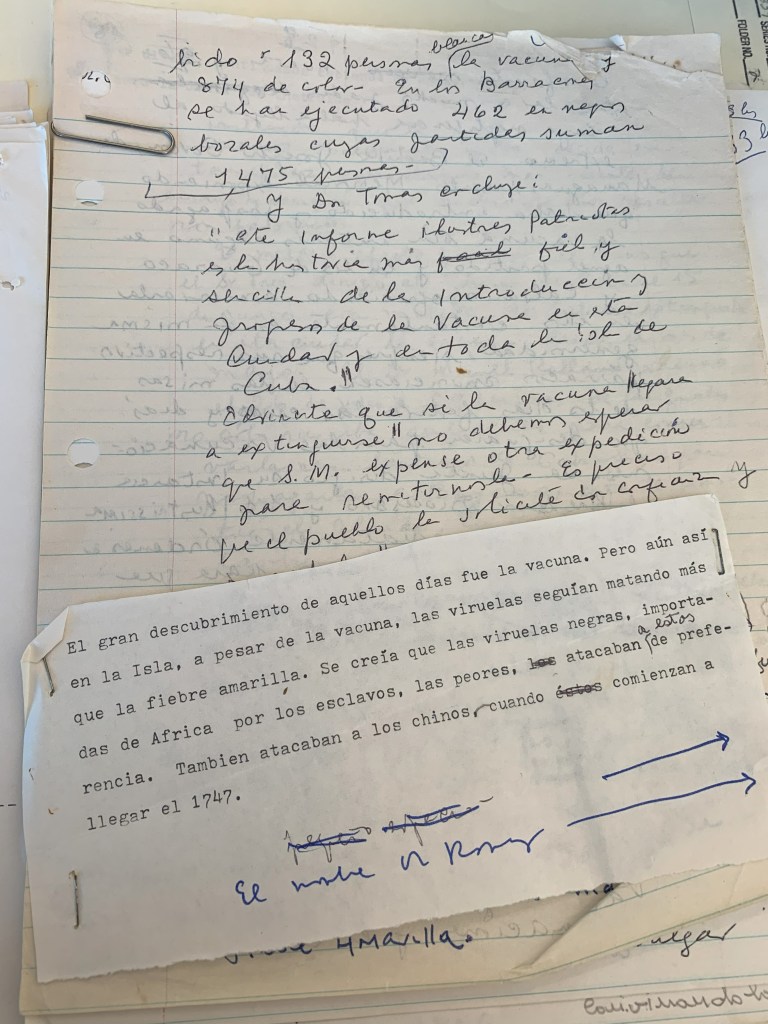 bido 132 personas blancas la vacuna y
874 de color - En los Barracones
se han ejecutado 462 en negros
bozales cuyas partidas suman
1475 personas -
y Dn Tomas concluye:
"este informe ilustres Patriotas
es la historia más fiel, y
sencilla de la introduccion y
progreso de la Vacuna en esta
Cuidad y en toda la isla de
Cuba."
Advierte que si la vacuna llegara
a extinguirse" no debemos esperar
que S. M. expense otra expedición
para remitirnosla - Es preciso
que el pueblo la solicite con confianza y
El gran descubrimiento de aquellos días fue la vacuna. Pero aún así
en la Isla, a pesar de la vacuna, las viruelas seguían matando más
que la fiebre amarilla. Se creía que las viruelas negras, importa-
das de Africa por los esclavos, las peores, las atacaban a estos de prefe-
rencia. Tambien atacaban a los chinos, cuando éstos comienzan a
llegar el 1747.
El
Amarilla.
FOLDER NO.